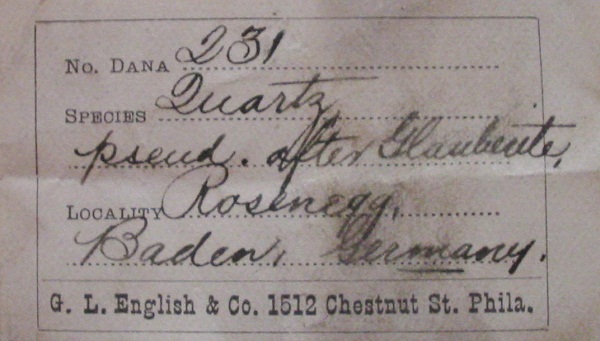 No. Dana 231
Species Quartz
pseud. after Glauberite,
Locality Rosenegg,
Baden, Germany.
G. L. English & Co. 1512 Chestnut St. Phila.